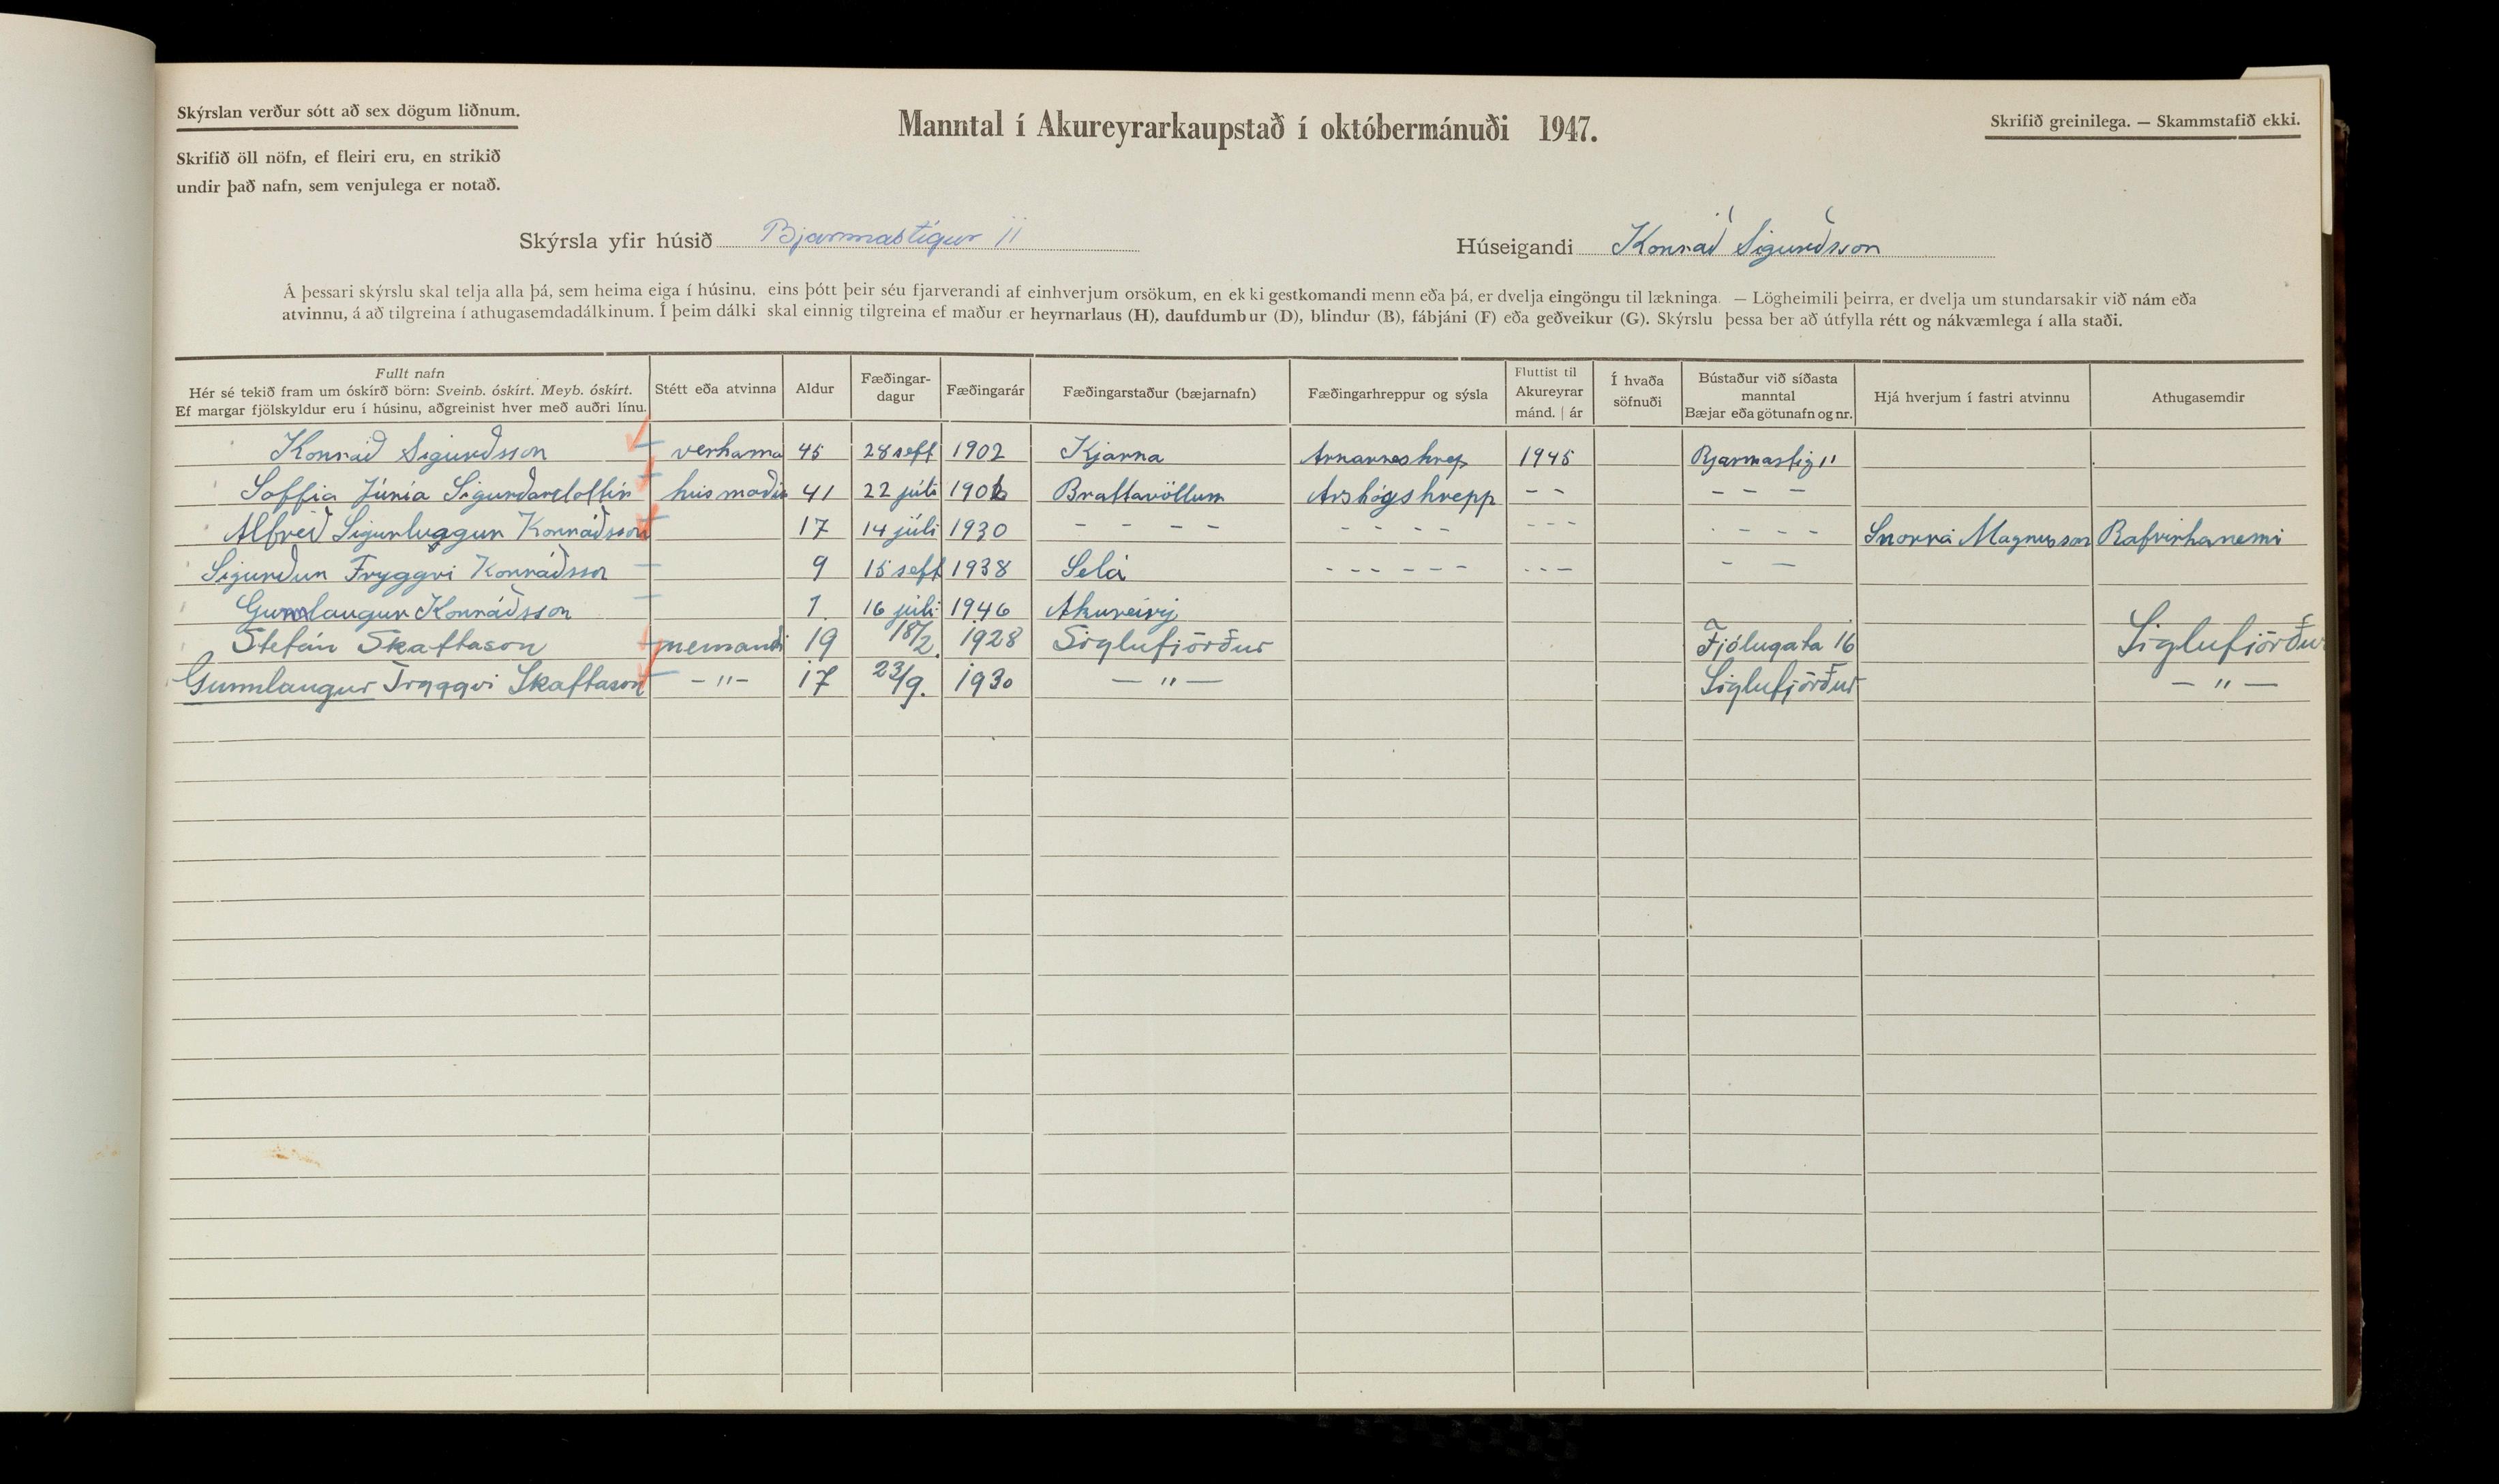 Skýrslan verður sótt að sex dögum liðnum.
Skrifið öll nöfn, ef fleiri eru, en strikið
undir það nafn, sem venjulega er notað.
Manntal í Akureyrarkaupstað í októbermánuði 1947.
Skrifið greinilega. — Skammstafið ekki.
Skýrsla yfir húsið Bjarmastígur 11
Húseigandi Konráð Sigurðsson
Á þessari skýrslu skal telja alla þá, sem heima eiga í húsinu, eins þótt þeir séu fjarverandi af einhverjum orsökum, en ekki gestkomandi menn eða þá, er dvelja eingöngu til lækninga. — Lögheimili þeirra, er dvelja um stundarsakir við nám eða
atvinnu, á að tilgreina í athugasemdadálkinum. Í þeim dálki skal einnig tilgreina ef maður er heyrnarlaus (H), daufdumbur (D), blindur (B), fábjáni (F) eða geðveikur (G). Skýrslu þessa ber að útfylla rétt og nákvæmlega í alla staði.
Fullt nafn
Hér sé tekið fram um óskírð börn: Sveinb. óskírt. Meyb. óskírt.
Ef margar fjölskyldur eru í húsinu, aðgreinist hver með auðri línu.
Stétt eða atvinna
Aldur
Fæðingar-
dagur
Fæðingarár
Fæðingarstaður (bæjarnafn)
Fæðingarhreppur og sýsla
Fluttist til
Akureyrar
mánd. | ár
Í hvaða
söfnuði
Bústaður við síðasta
manntal
Bæjar eða götunafn og nr.
Hjá hverjum í fastri atvinnu
Athugasemdir
Konráð Sigurðsson verkama 45 28 sept 1902 Kjarna Arnarneshrep 1945 Bjarmastig 11
Soffia Júnía Sigurðardottir húsmoðir 41 22 júli 1906 Brattavöllum Arskógshrepp - - - - -
Alfreð Sigurluggur Konráðsson 17 14 júli 1930 - - - - - - - - - - - - - - - Snorra Magnusson Rafvirkanemi
Sigurður Tryggvi Konráðsson 9 15 sept 1938 Selá - - - - - - - - - - -
Gunnlaugur Konráðsson 1 16 júli 1946 Akureirij
Stefán Skaftason nemandi 19 18/2. 1928 Siglufjörður Fjólugata 16 Siglufjörður
Gunnlaugur Tryggvi Skaftason — " — 17 23/9. 1930 — " — Siglufjörður — " —